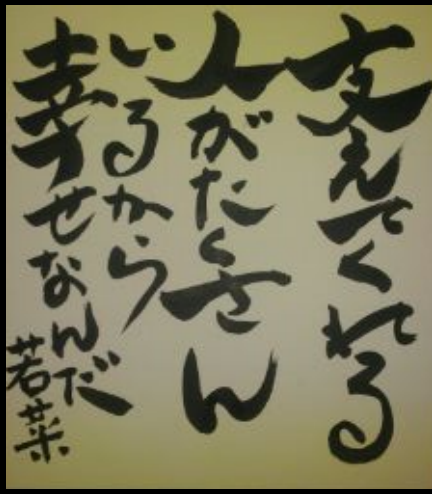 支えてくれる
人がたくさん
いるから
幸せなんだ
若菜